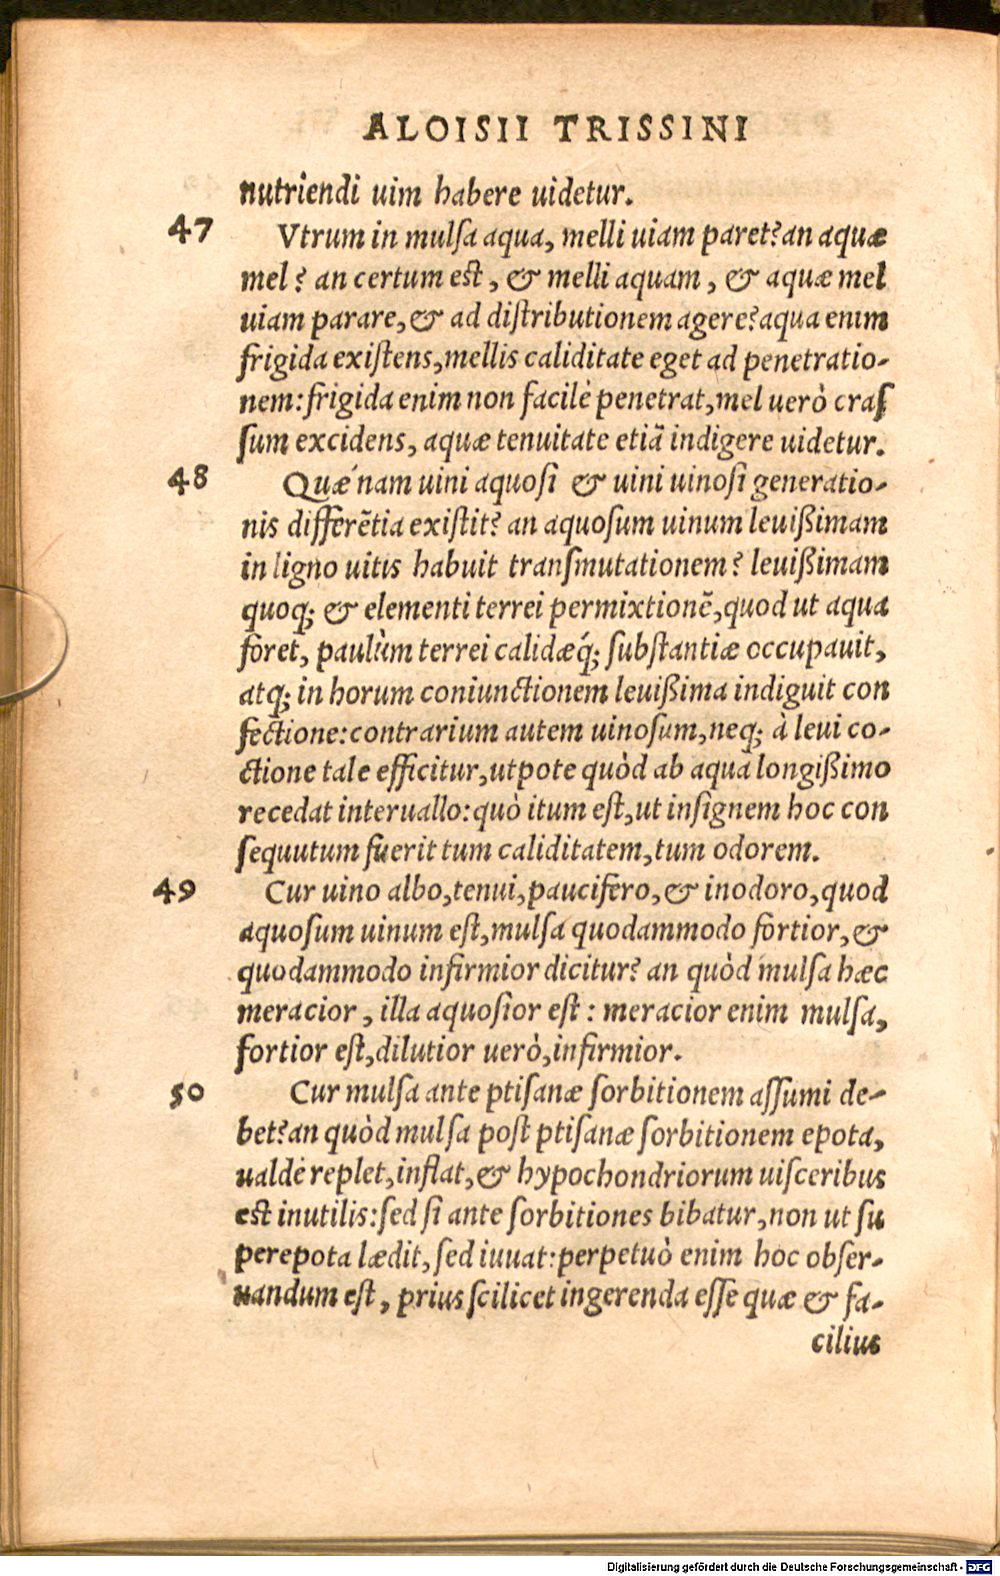 ALOISII TRISSINI
nutriendi uim habere uidetur.
47 Vtrum in mulſa aqua, melli uiam paret? an aquæ
mel? an certum est, & melli aquam, & aquæ mel
uiam parare, & ad diſtributionem agere? aqua enim
frigida exiſtens, mellis caliditate eget ad penetratio-
nem: frigida enim non facilè penetrat, mel uerò craſ
ſum excidens, aquæ tenuitate etiã indigere uidetur.
48 Quæ´nam uini aquoſi & uini uinoſi generatio-
nis differẽtia exiſtit? an aquoſum uinum leuißimam
in ligno uitis habuit tranſmutationem? leuißimam
quoq; & elementi terrei permixtionẽ, quod ut aqua
foret, paulùm terrei calidæq́; ſubſtantiæ occupauit,
atq; in horum coniunctionem leuißima indiguit con
fectione: contrarium autem uinoſum, neq; à leui co-
ctione tale efficitur, utpote quòd ab aqua longißimo
recedat interuallo: quò itum eſt, ut inſignem hoc con
ſequutum fuerit tum caliditatem, tum odorem.
49 Cur uino albo, tenui, paucifero, & inodoro, quod
aquoſum uinum eſt, mulſa quodammodo fortior, &
quodammodo infirmior dicitur? an quòd mulſa hæc
meracior, illa aquoſior eſt: meracior enim mulſa,
fortior eſt, dilutior uerò, infirmior.
50 Cur mulſa ante ptiſanæ ſorbitionem aſſumi de-
bet? an quòd mulſa poſt ptiſanæ ſorbitionem epota,
ualdè replet, inflat, & hypochondriorum uiſceribus
est inutilis: ſed ſi ante ſorbitiones bibatur, non ut ſu
perepota lædit, ſed iuuat: perpetuò enim hoc obſer-
uandum eſt, prius ſcilicet ingerenda eſſe quæ & fa-
cilius
Digitalisierung gefördert durch die Deutsche Forschungsgemeinschaft - DFG